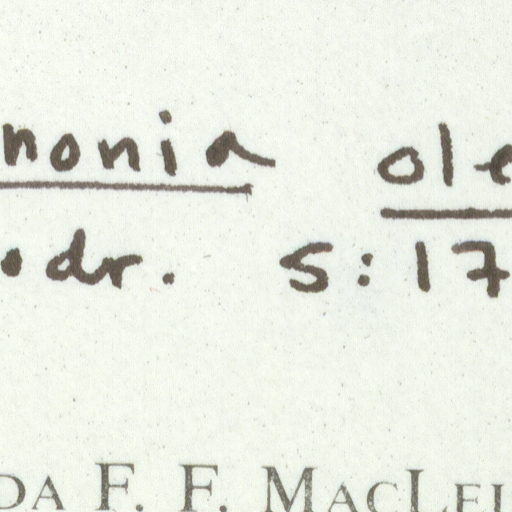 nonia ole
odr. 5:17
DA F. F. MACLEI